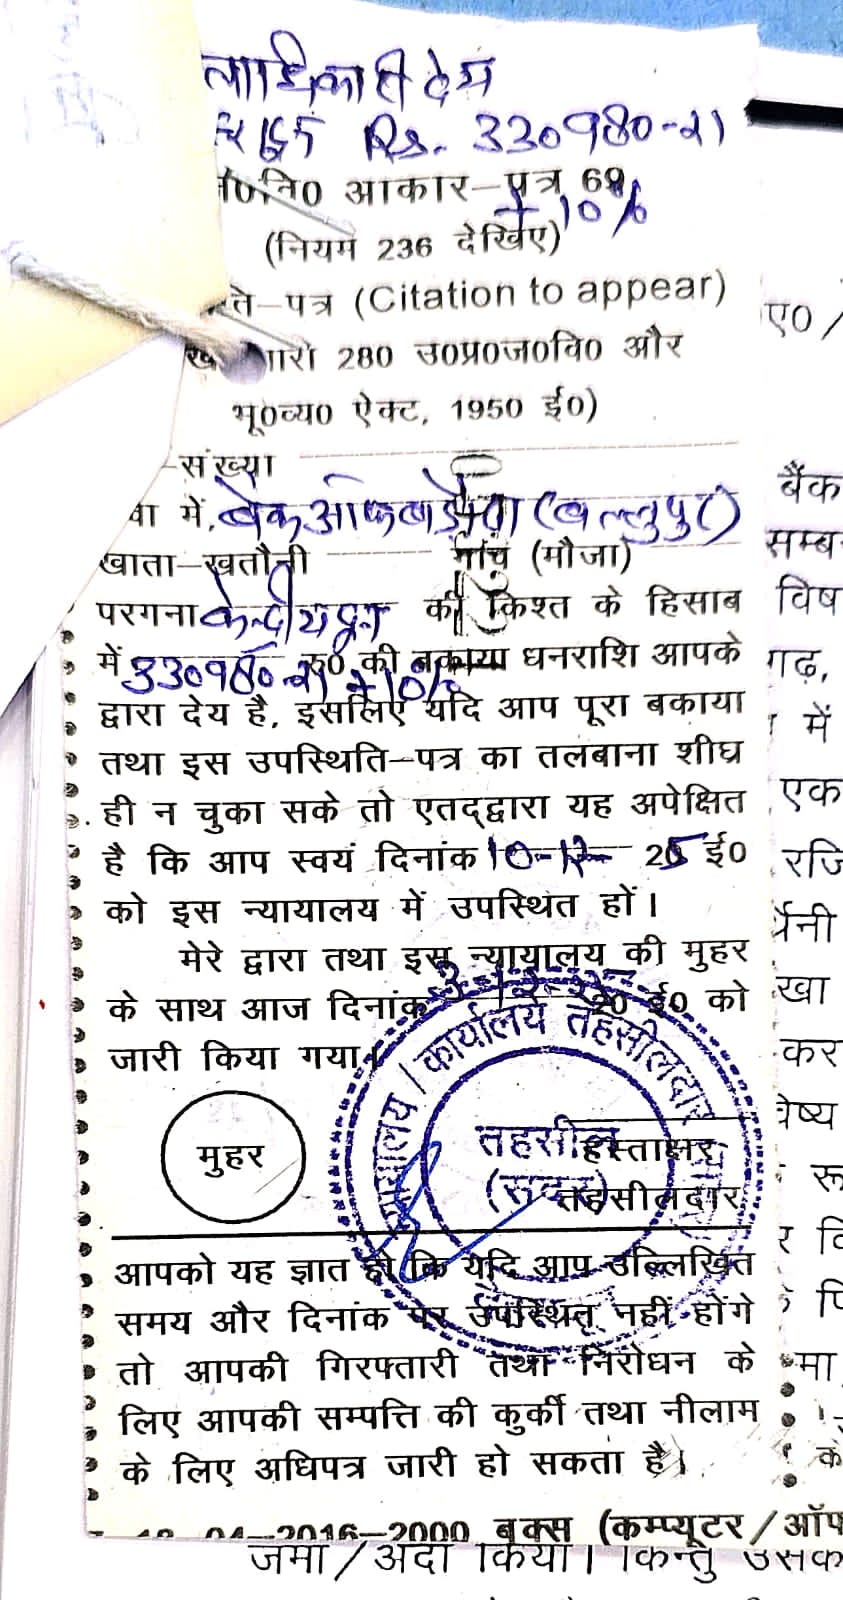 Rs. 330980-21
+ 10%
आकार-पत्र 69
(नियम 236 देखिए)
ते-पत्र (Citation to appear)
280 उ०प्र०ज०वि० और
भू०व्य० ऐक्ट, 1950 ई०)
-संख्या
वा में, बैंक ऑफ बड़ौदा (बल्लुपुर)
खाता-खतौनी गांव (मौजा)
परगना की किश्त के हिसाब
में 330980-21 + 10% रु० की बकाया धनराशि आपके
द्वारा देय है, इसलिए यदि आप पूरा बकाया
तथा इस उपस्थिति-पत्र का तलबाना शीघ्र
ही न चुका सके तो एतद्द्वारा यह अपेक्षित
है कि आप स्वयं दिनांक 10-12- 25 ई०
को इस न्यायालय में उपस्थित हों।
मेरे द्वारा तथा इस न्यायालय की मुहर
के साथ आज दिनांक 20 ई० को
जारी किया गया।
न्यायालय / कार्यालय तहसीलदार
तहसील
(सदर)
मुहर
हस्ताक्षर
तहसीलदार
आपको यह ज्ञात हो कि यदि आप उल्लिखित
समय और दिनांक पर उपस्थित नहीं होंगे
तो आपकी गिरफ्तारी तथा निरोधन के
लिए आपकी सम्पत्ति की कुर्की तथा नीलाम
के लिए अधिपत्र जारी हो सकता है।
04-2016-2000 बुक्स (कम्प्यूटर/ऑफ
जमा/अदा किया। किन्तु उसक
ए० /
बैंक
सम्ब
विष
गढ़,
में
एक
रजि
र्मैनी
खा
कर